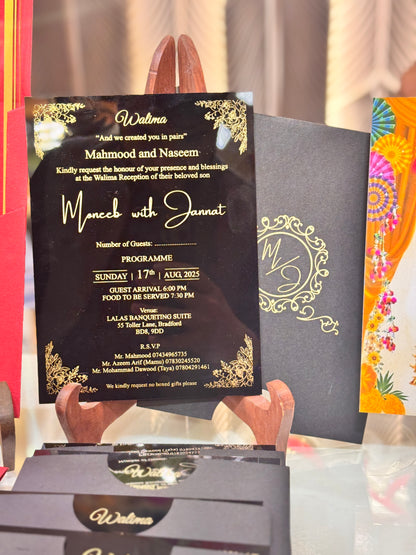 Walima
"And we created you in pairs"
Mahmood and Naseem
Kindly request the honour of your presence and blessings
at the Walima Reception of their beloved son
Moneeb with Jannat
Number of Guests: ...............
PROGRAMME
SUNDAY | 17th | AUG, 2025
GUEST ARRIVAL 6:00 PM
FOOD TO BE SERVED 7:30 PM
Venue:
LALAS BANQUETING SUITE
55 Toller Lane, Bradford
BD8, 9DD
R.S.V.P
Mr. Mahmood 07434965735
Mr. Azeem Arif (Mamu) 07830245520
Mr. Mohammad Dawood (Taya) 07804291461
We kindly request no boxed gifts please
M J
Walima
Walima